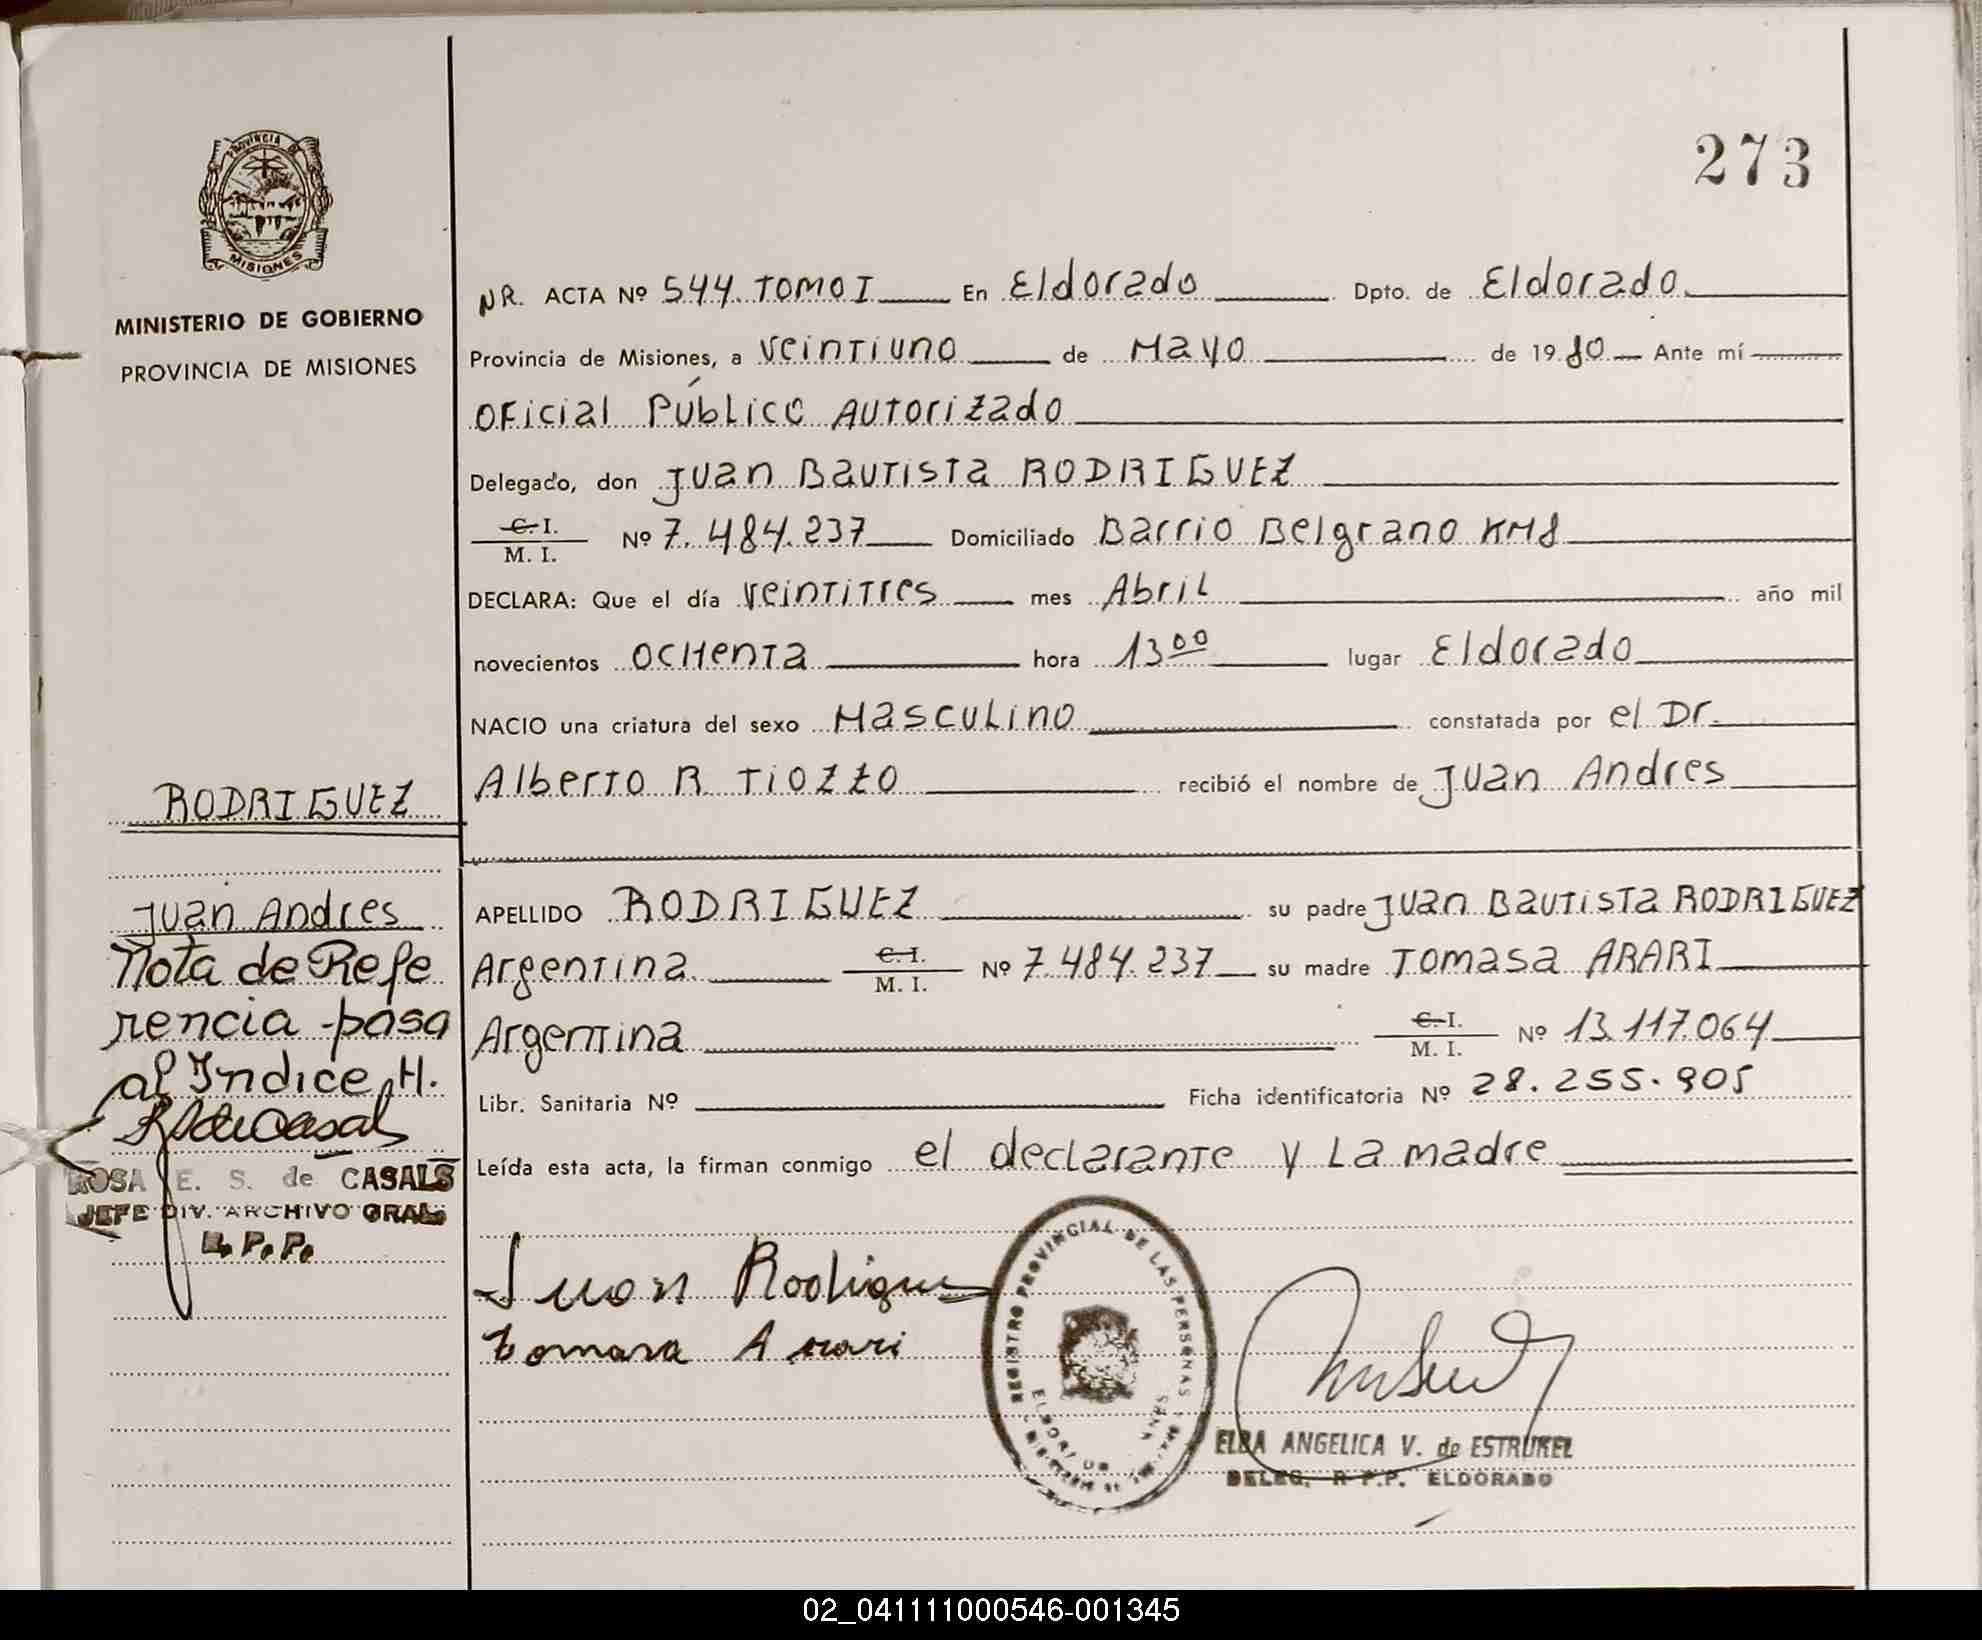 273
PROVINCIA DE
MISIONES
MINISTERIO DE GOBIERNO
PROVINCIA DE MISIONES
NR. ACTA Nº 544. TOMO I En Eldorado Dpto. de Eldorado
Provincia de Misiones, a veintiuno de Mayo de 1980 Ante mí
Oficial Público Autorizado
Delegado, don Juan Bautista RODRIGUEZ
C. I.
M. I. Nº 7.484.237 Domiciliado Barrio Belgrano KM8
DECLARA: Que el día veintitres mes Abril año mil
novecientos OCHenta hora 13 00 lugar Eldorado
NACIO una criatura del sexo Masculino constatada por el Dr.
Alberto R. TIOZZO recibió el nombre de Juan Andres
APELLIDO RODRIGUEZ su padre Juan Bautista RODRIGUEZ
Argentina C. I. M. I. Nº 7.484.237 su madre Tomasa ARARI
Argentina C. I. M. I. Nº 13.117.064
Libr. Sanitaria Nº Ficha identificatoria Nº 28.255.905
Leída esta acta, la firman conmigo el declarante y La madre
RODRIGUEZ
Juan Andres
Nota de Refe
rencia pasa
al Indice H.
ROSA E. S. de CASALS
JEFE DIV. ARCHIVO GRAL.
R. P. P.
Juan Rodrigues
tomasa Arari
REGISTRO PROVINCIAL DE LAS PERSONAS
ELDORADO
ELBA ANGELICA V. de ESTRUKEL
DELEG. R.P.P. ELDORADO
02_041111000546-001345